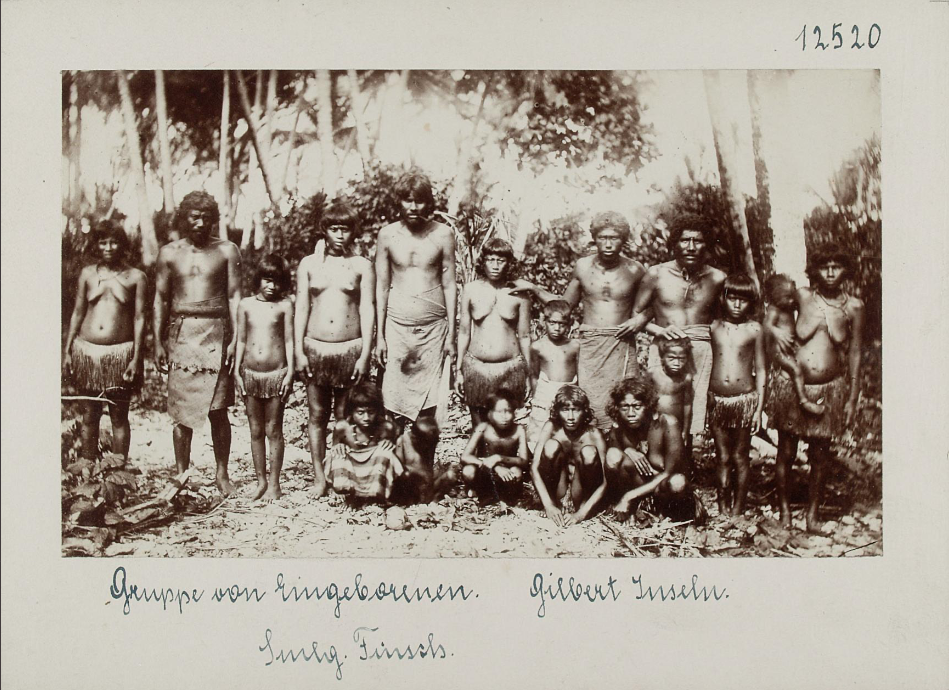 12520
Gruppe von Eingeborenen. Gilbert Inseln.
Smlg. Finsch.